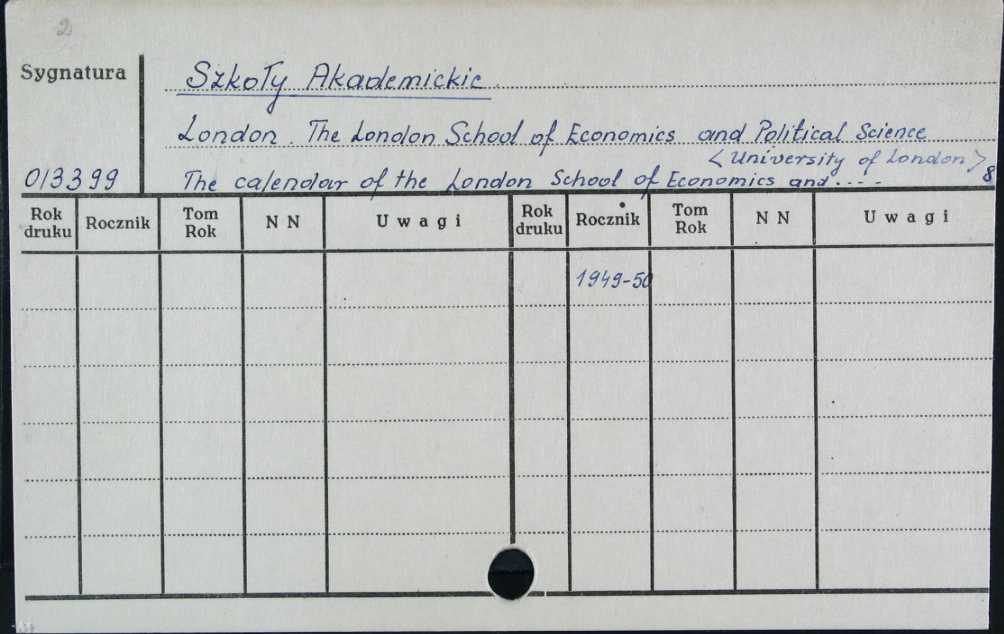 2
Sygnatura
Szkoły Akademickie
London. The London School of Economics and Political Science
<University of London>
013399 The calendar of the London School of Economics and.... 8
Rok druku Rocznik Tom Rok NN Uwagi Rok druku Rocznik Tom Rok NN Uwagi
1949-50